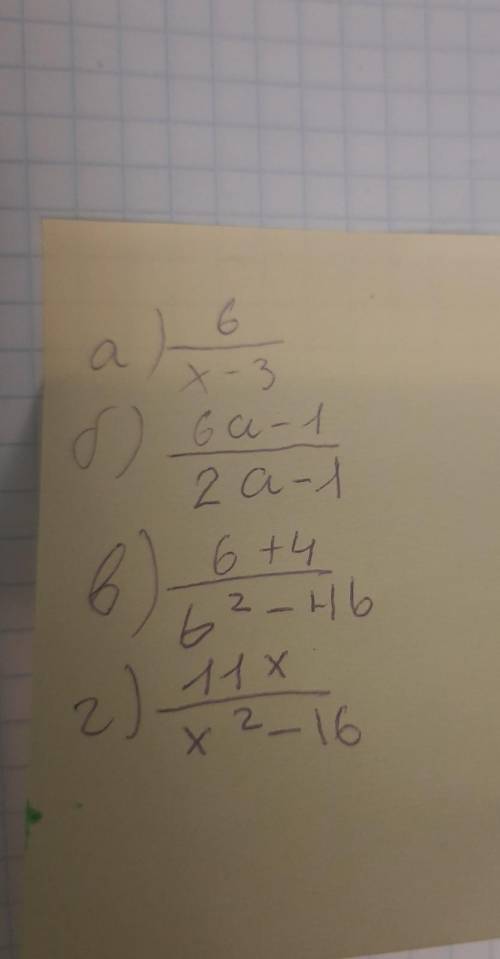 а) 6/(x-3)
б) (6a-1)/(2a-1)
в) (6+4)/(b²-4b)
г) 11x/(x²-16)